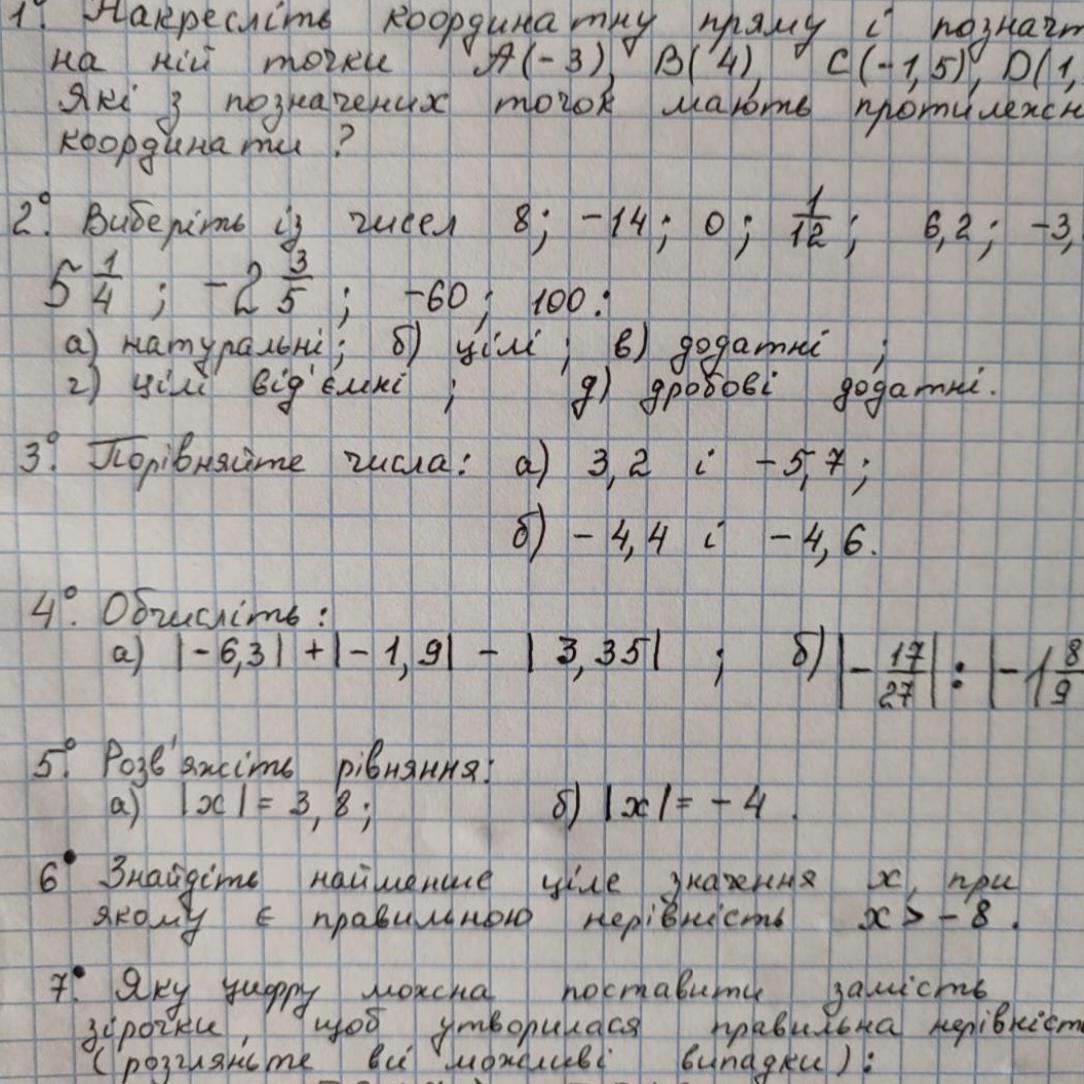 1°. Накресліть координатну пряму і позначт
на ній точки А(-3), В(4), С(-1,5), D(1,
Які з позначених точок мають протилежн
координати ?
2°. Виберіть із чисел 8; -14; 0; 1/12; 6,2; -3,
5 1/4; -2 3/5; -60; 100:
а) натуральні; б) цілі; в) додатні ;
г) цілі від'ємні ; д) дробові додатні.
3°. Порівняйте числа: а) 3,2 і -5,7;
б) -4,4 і -4,6.
4°. Обчисліть:
а) |-6,3| + |-1,9| - |3,35| ; б) |-17/27| : |-1 8/9
5°. Розв'яжіть рівняння:
а) |x| = 3,8; б) |x| = -4 .
6• Знайдіть найменше ціле значення x, при
якому є правильною нерівність x > -8 .
7•. Яку цифру можна поставити замість
зірочки, щоб утворилася правильна нерівніст
(розгляньте всі можливі випадки) :